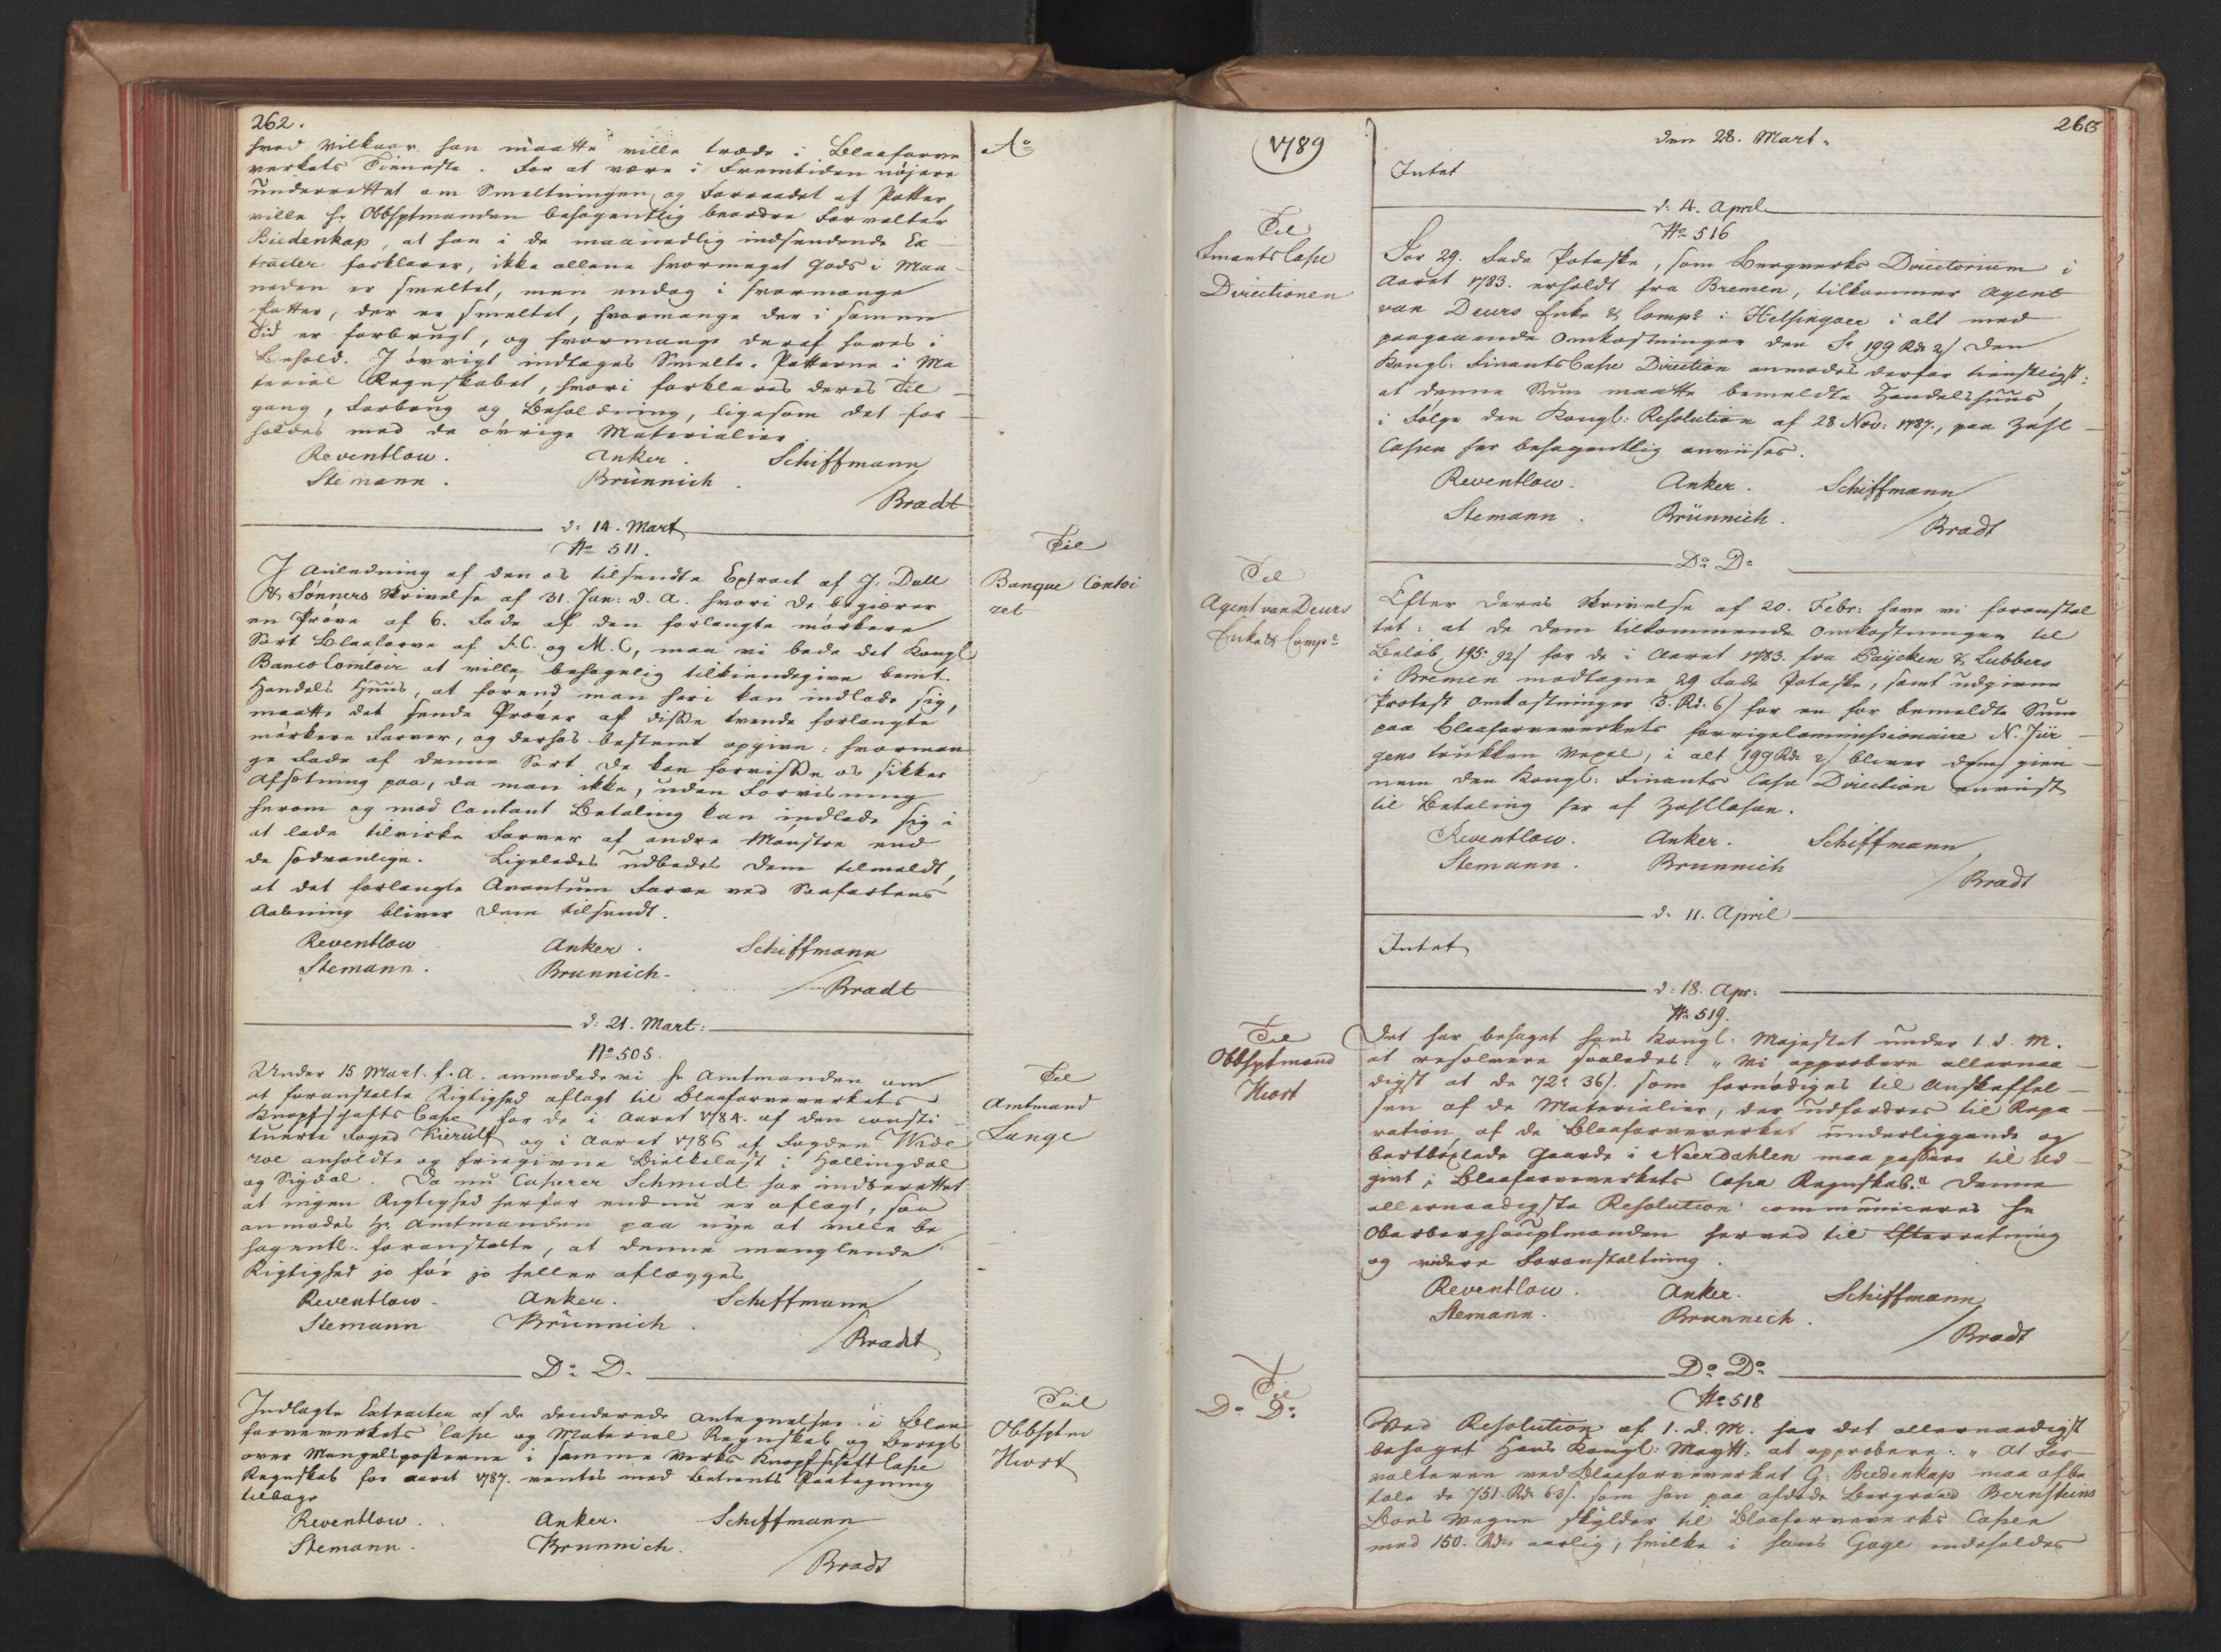 262.
Ao
hvad Vilkaar han maatte ville træde i Blaafarve
verkets Tieneste. For at være i Fremtiden nøjere
underrettet om Smeltningen og Forraadet af Potter
ville Hr Obbhptmanden behagentlig beordre Forvalter
Biedenkap, at han i de maanedlig indsendende Ex
tracter forklarer, ikke allene hvormeget Gods i Maa-
neden er smeltet, men endog i hvormange
Potter, der er smeltet, hvormange der i samme
Tid er forbrugt, og hvormange deraf haves i
Behold. I øvrigt indtages Smelte-Potterne i Ma
terial Regnskabet, hvori forklares deres Til-
gang, Forbrug og Beholdning, ligesom det for-
holdes med de øvrige Materialier
Reventlow. Anker. Schiffmann
Stemann. Brünnich.
/Bradt
d: 14. Mart
No 511.
Til
Banque Contoi
ret
I Anledning af den os tilsendte Extract af J: Dull
& Sønners Skrivelse af 31. Jan: d. A. hvori de begiærer
en Prøve af 6. Fade af den forlangte mørkere
Sort Blaafarve af F.C. og M.C, maa vi bede det Kongl
Banco Comtoir at ville behagelig tilkiendegive bemt.
Handels Huus, at forend man heri kan indlade sig,
maatte det sende Prøver af disse tvende forlangte
mørkere Farver, og derhos bestemt opgive: hvorman
ge Fade af denne Sort de kan forvisse os sikker
Afsætning paa, da man ikke, uden Forvisning
herom og mod Contant Betaling kan indlade sig i
at lade tilvirke Farver af andre Mønstre end
de sædvanlige. Ligeledes udbedes dem tilmeldt,
at det forlangte Avantum Farve ved Søefartens
Aabning bliver dem tilsendt.
Reventlow Anker. Schiffmann
Stemann. Brunnich.
/Bradt
d: 21. Mart:
No 505.
Til
Amtmand
Lange
Under 15 Mart. f. A. anmodede vi Hr Amtmanden om
at foranstalte Rigtighed aflagt til Blaafarveverkets
Knapschafts Casse for de i Aaret 1784. af den consti-
tuerte Foged Kierulf og i Aaret 1786 af Fogden Wide
roe anholdte og friegivne Bielkelast i Hallingdal
og Sigdal. Da nu Casserer Schmidt har indberettet
at ingen Rigtighed herfor endnu er aflagt, saa
anmodes Hr Amtmanden paa nye at ville be
hagentl. foranstalte, at denne manglende
Rigtighed jo før jo heller aflægges
Reventlow. Anker. Schiffmann
Stemann Brünnich.
/Bradt
Do D.
Til
Obbhptm
Hiort
Indlagte Extracter af de deciderede Antegnelser i Blaa
farveverkets Casse og Material Regnskab og Beregl
over Mangelsposterne i samme Verks Knapschaft Casse
Regnskab for Aaret 1787. ventes med Betients Paategning
tilbage
Reventlow. Anker. Schiffmann
Stemann. Brunnich.
/Bradt
1789
263
den 28. Mart.
Intet
d. 4. April
No 516
Til
Finants Casse
Directionen
For 29. Fade Potaske, som Bergverks Directorium i
Aaret 1783. erholdt fra Bremen, tilkommer Agent
van Deurs Enke & Compe i Helsingøer i alt med
paagaaende Omkostninger den Sm 199 Rdr 2/ Den
Kongl. Finants Casse Direction anmodes derfor tienstligst:
at denne Sum maatte bemeldte Handelshuus,
i Følge den Kongl: Resolution af 28 Nov: 1787., paa Zahl-
Cassen her behagentlig anviises.
Reventlow. Anker. Schiffmann
Stemann. Brünnich.
/Bradt
Do Do
Til
Agent van Deurs
Enke & Compe
Efter Deres Skrivelse af 20. Febr: have vi foranstal
tet: at de Dem tilkommende Omkostninger til
Beløb 195. 92/ for de i Aaret 1783. fra Paycken & Lubbers
i Bremen modtagne 29 Fade Potaske, samt udgivne
Protest Omkostninger 3. Rd. 6/ for en for bemeldte Sum
paa Blaafarveverkets forrige Commissionaire N. Jür-
gens trukken Vexel, i alt 199 Rdr 2/ bliver Dem gien-
nem den Kongl: Finants Casse Direction anviist
til Betaling her af Zahlkassen.
Reventlow. Anker. Schiffmann
Stemann. Brunnich
/Bradt
d. 11. April
Intet
d: 18. Apr:
No 519.
Til
Obbhptmand
Hiort
Det har behaget Hans Kongl. Majestet under 1. d. M.
at resolvere saaledes: "Vi approbere allernaa-
digst at de 72r 36/. som fornødiges til Anskaffel-
sen af de Materialier, der udfordres til Repa-
ration af de Blaafarveverket underliggende og
bortbøxlede Gaarde i Neerdahlen maa passere til Ud-
givt i Blaafarveverkets Casse Regnskab." Denne
allernaadigste Resolution communiceres Hr
Oberberghauptmanden herved til Efterretning
og videre Foranstaltning.
Reventlow. Anker. Schiffmann
Stemann. Brunnich.
/Bradt
Do Do
No 518
Til
Do Do
Ved Resolution af 1. d. M. har det allernaadigst
behaget Hans Kongl: Maytt: at approbere: "At For-
valteren ved Blaafarveverket G: Biedenkap maa afbe
tale de 751. Rdr 63/. som han paa afdøde Bergraad Bernsteins
Boes Vegne skylder til Blaafarveverks Cassen
med 150. Rdr aarlig, hvilke i hans Gage indeholdes